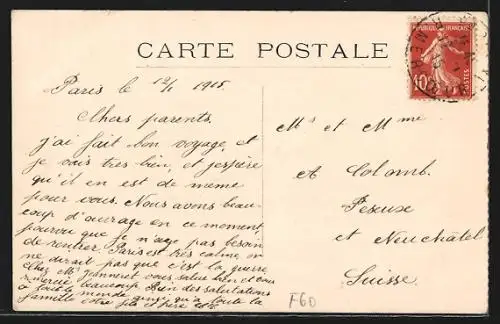 CARTE POSTALE
REPUBLIQUE FRANÇAISE
10
POSTES
Paris le 12/1 1915.
Chers parents.
j'ai fait bon voyage, et
je vais tres bien, et j'espère
qu'il en est de meme
pour vous. Nous avons beau-
coup d'ouvrage en ce moment
pourvu que je n'aye pas besoin
de rentrer. Paris est très calme, on
ne dirait pas que c'est la guerre
Chez Mr Jeanneret vous salue bien et vous
remercie beaucoup. Bien des salutations
à tout le monde, ainsi qu'à toute la
famille votre fils et frère
Mr et Mme
A Colomb.
Peseux
et Neuchâtel
Suisse.
F60